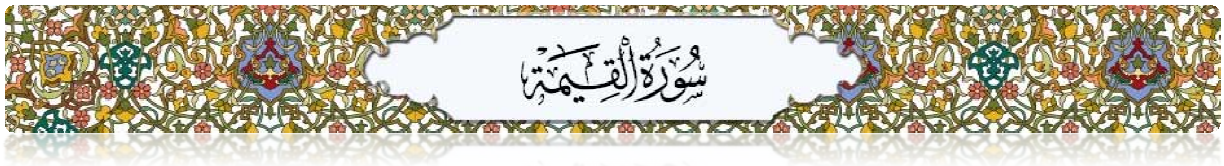 سُورَةُ الْقِيَمَة